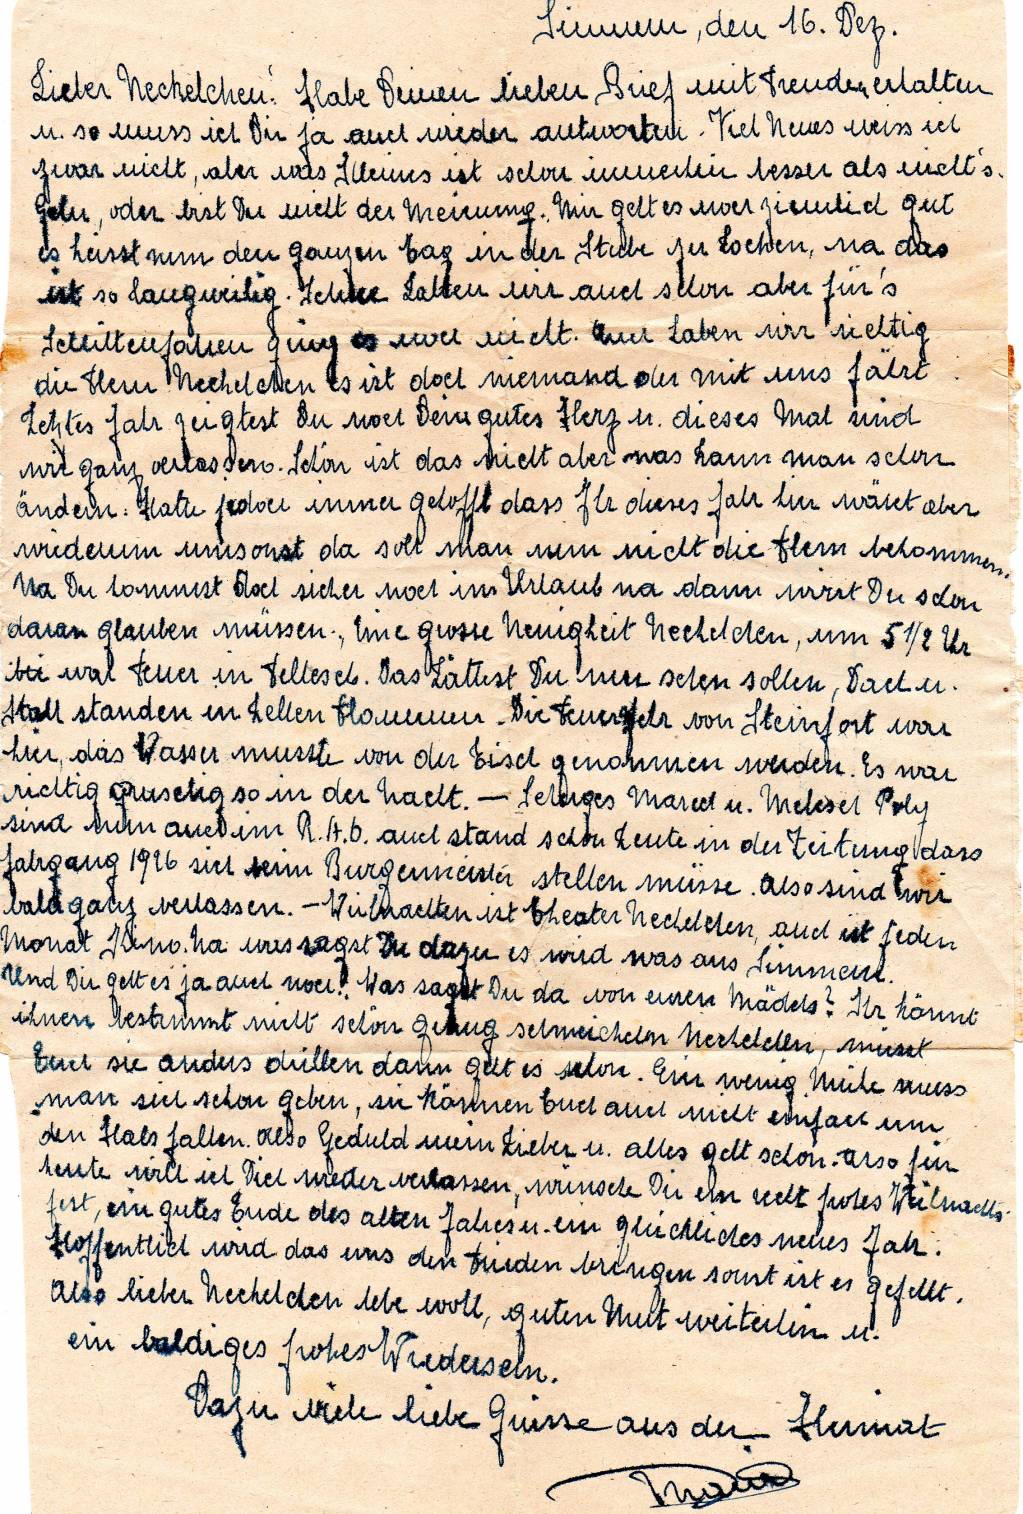 Simmern, den 16. Dez.
Lieber Nechelchen! Habe Deinen lieben Brief mit Freuden erhalten
u. so muss ich Dir ja auch wieder antworten. Viel Neues weiss ich
zwar nicht, aber was Kleines ist schon immerhin besser als nicht's.
Gelu, oder bist Du nicht der Meinung. Mir geht es noch ziemlich gut
es heisst nun den ganzen Tag in der Stube zu hocken, na das
ist so langweilig. Schnee haben wir auch schon aber für's
Schlittenfahren ging es noch nicht. Auch haben wir richtig
die Flem Nechelchen es ist doch niemand der mit uns fährt.
Letztes Jahr zeigtest Du noch Dein gutes Herz u. dieses Mal sind
wir ganz verlassen. Schön ist das nicht aber was kann man schon
ändern. Hatte jedoch immer gehofft dass Ihr dieses Jahr hier wäret aber
wiederum umsonst da soll man nun nicht die Flem bekommen.
Na Du kommst doch sicher noch in Urlaub na dann wirst Du schon
daran glauben müssen. Eine grosse Neuigkeit Nechelchen, um 5 1/2 Uhr
war Feuer in . Das hättest Du nun sehen sollen, Dach u.
Stall standen in hellen Flammen. Die Feuerwehr von Steinfort war
hier, das Wasser musste von der Eisch genommen werden. Es war
richtig gruselig so in der Nacht. — Marcel u. Poly
sind nun auch im R.A.D. auch stand schon heute in der Zeitung dass
Jahrgang 1926 sich beim Burgermeister stellen müsse. Also sind wir
bald ganz verlassen. – Weihnachten ist Theater Nechelchen, auch ist jeden
Monat Kino. Na was sagst Du dazu es wird was aus Simmern.
Und Dir geht es ja auch noch! Was sagst Du da von euren Mädels? Ihr könnt
ihnen bestimmt nicht schön genug schmeicheln Nechelchen, müsst
Euch sie anders drillen dann geht es schon. Ein wenig Mühe muss
man sich schon geben, sie können Euch auch nicht einfach um
den Hals fallen. Also Geduld mein Lieber u. alles geht schon. Also für
heute will ich Dich wieder verlassen, wünsche Dir ein recht frohes Weihnachts-
fest, ein gutes Ende des alten Jahres u. ein glückliches neues Jahr.
Hoffentlich wird das uns den Frieden bringen sonst ist es gefehlt.
Also lieber Nechelchen lebe wohl, guten Mut weiterhin u.
ein baldiges frohes Wiedersehn.
Dazu viele liebe Grüsse aus der Heimat